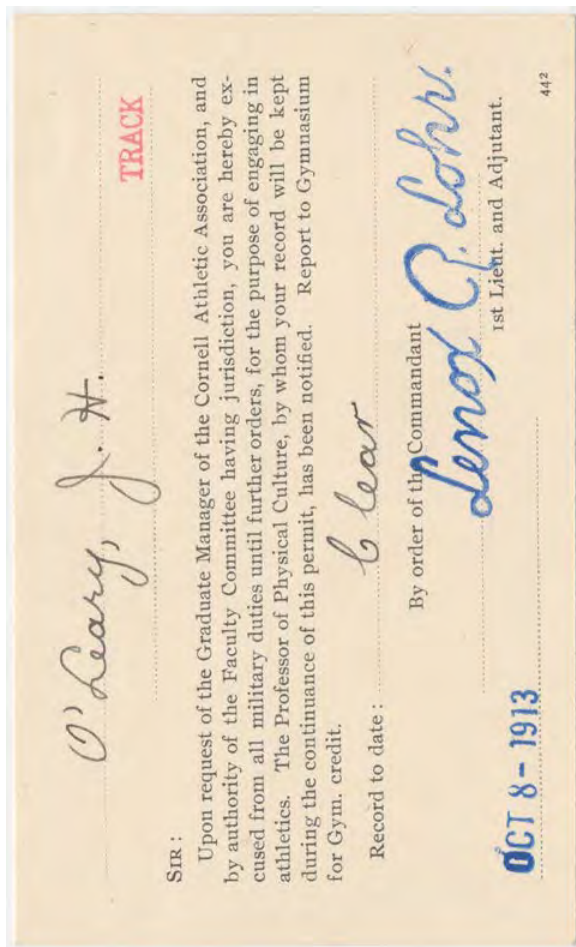 O'Leary, J. H.
TRACK
SIR:
Upon request of the Graduate Manager of the Cornell Athletic Association, and
by authority of the Faculty Committee having jurisdiction, you are hereby ex-
cused from all military duties until further orders, for the purpose of engaging in
athletics. The Professor of Physical Culture, by whom your record will be kept
during the continuance of this permit, has been notified. Report to Gymnasium
for Gym. credit.
Record to date: Clear
By order of the Commandant
Lenox R. Lohr.
1st Lieut. and Adjutant.
OCT 8-1913
442